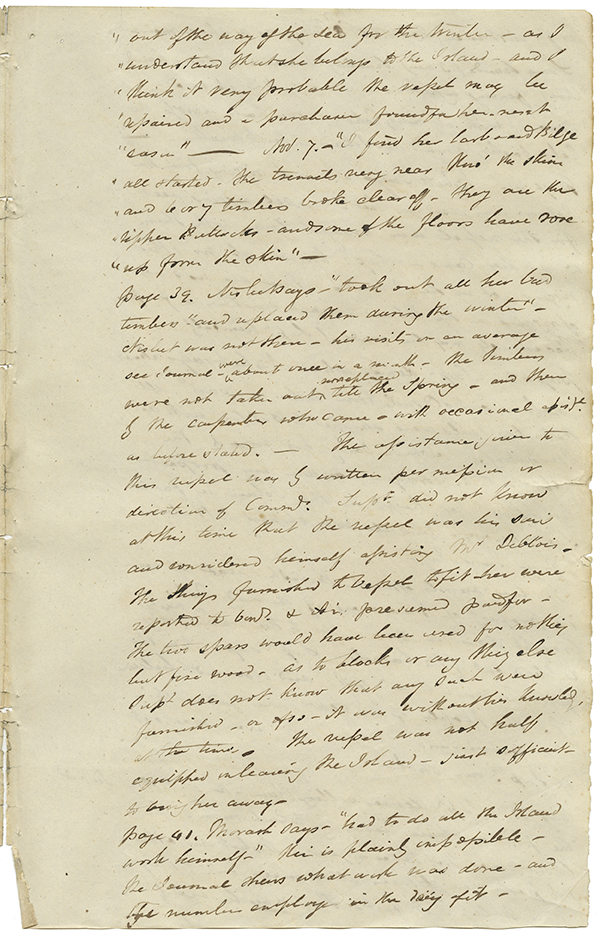 " out of the way of the sea for the winter – as I
" understand that she belongs to the Island – and I
" think it very probable the vessel may be
" repaired and a purchaser found for her next
" season" — Nov. 7. – "I find her larboard Bilge
" all started. the trenails very near thro' the skin
" and 6 or 7 timbers broke clear off – they are the
" upper – and some of the floors have rose
" up from the skin" –
Page 39. says – "took out all her bad
timbers "and replaced them during the winter" –
was not there – his visits on an average
see Journal – were about once in a month – the timbers
were not taken out nor replaced till the Spring – and then
by the carpenters who came – with occasional assist.
as before stated. — The assistance given to
this vessel was by written permission or
direction of Comrs. Supt. did not know
at this time that the vessel was his son's
and considered himself assisting Mr. Deblois –
The things furnished to vessel to fit her were
reported to bord. & presumed paid for –
The two spars would have been used for nothing
but fire wood – as to blocks or any thing else
Supt. does not know that any such were
furnished – or if so – it was without his knowledge,
at the time. The vessel was not half
equipped in leaving the Island – just sufficient
to her away –
Page 41. says – "had to do all the Island
work himself –" this is plainly impossible –
the Journal shews what work was done – and
the numbers employ in the daily –